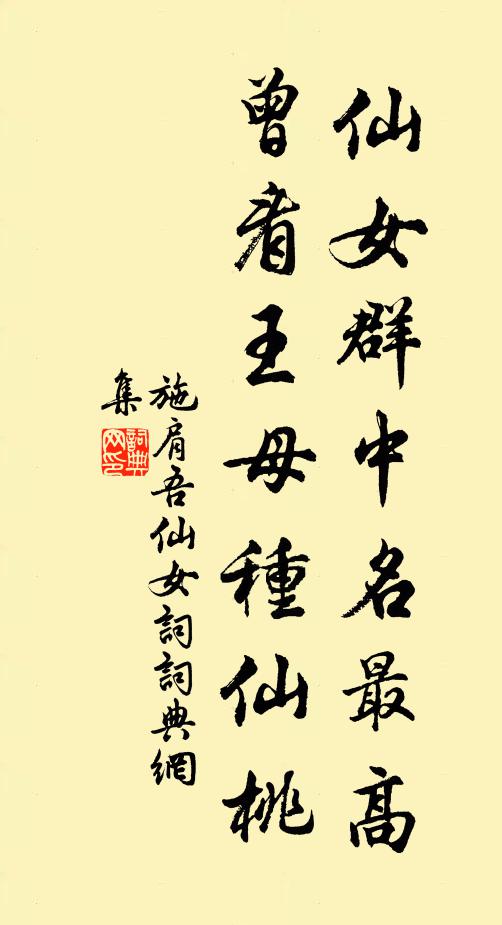 仙女群中名最高
曾看王母種仙桃
施肩吾仙女詞詞典網
集
詞典
网印